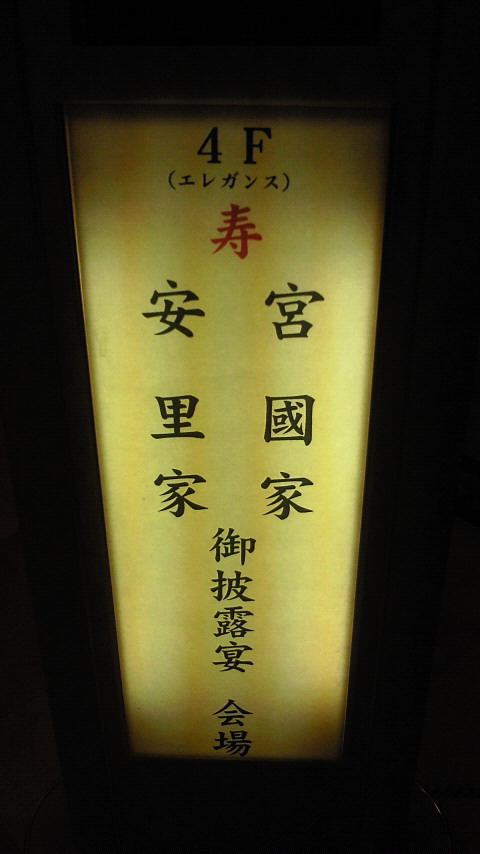 4F
(エレガンス)
寿
宮國家
安里家
御披露宴 会場